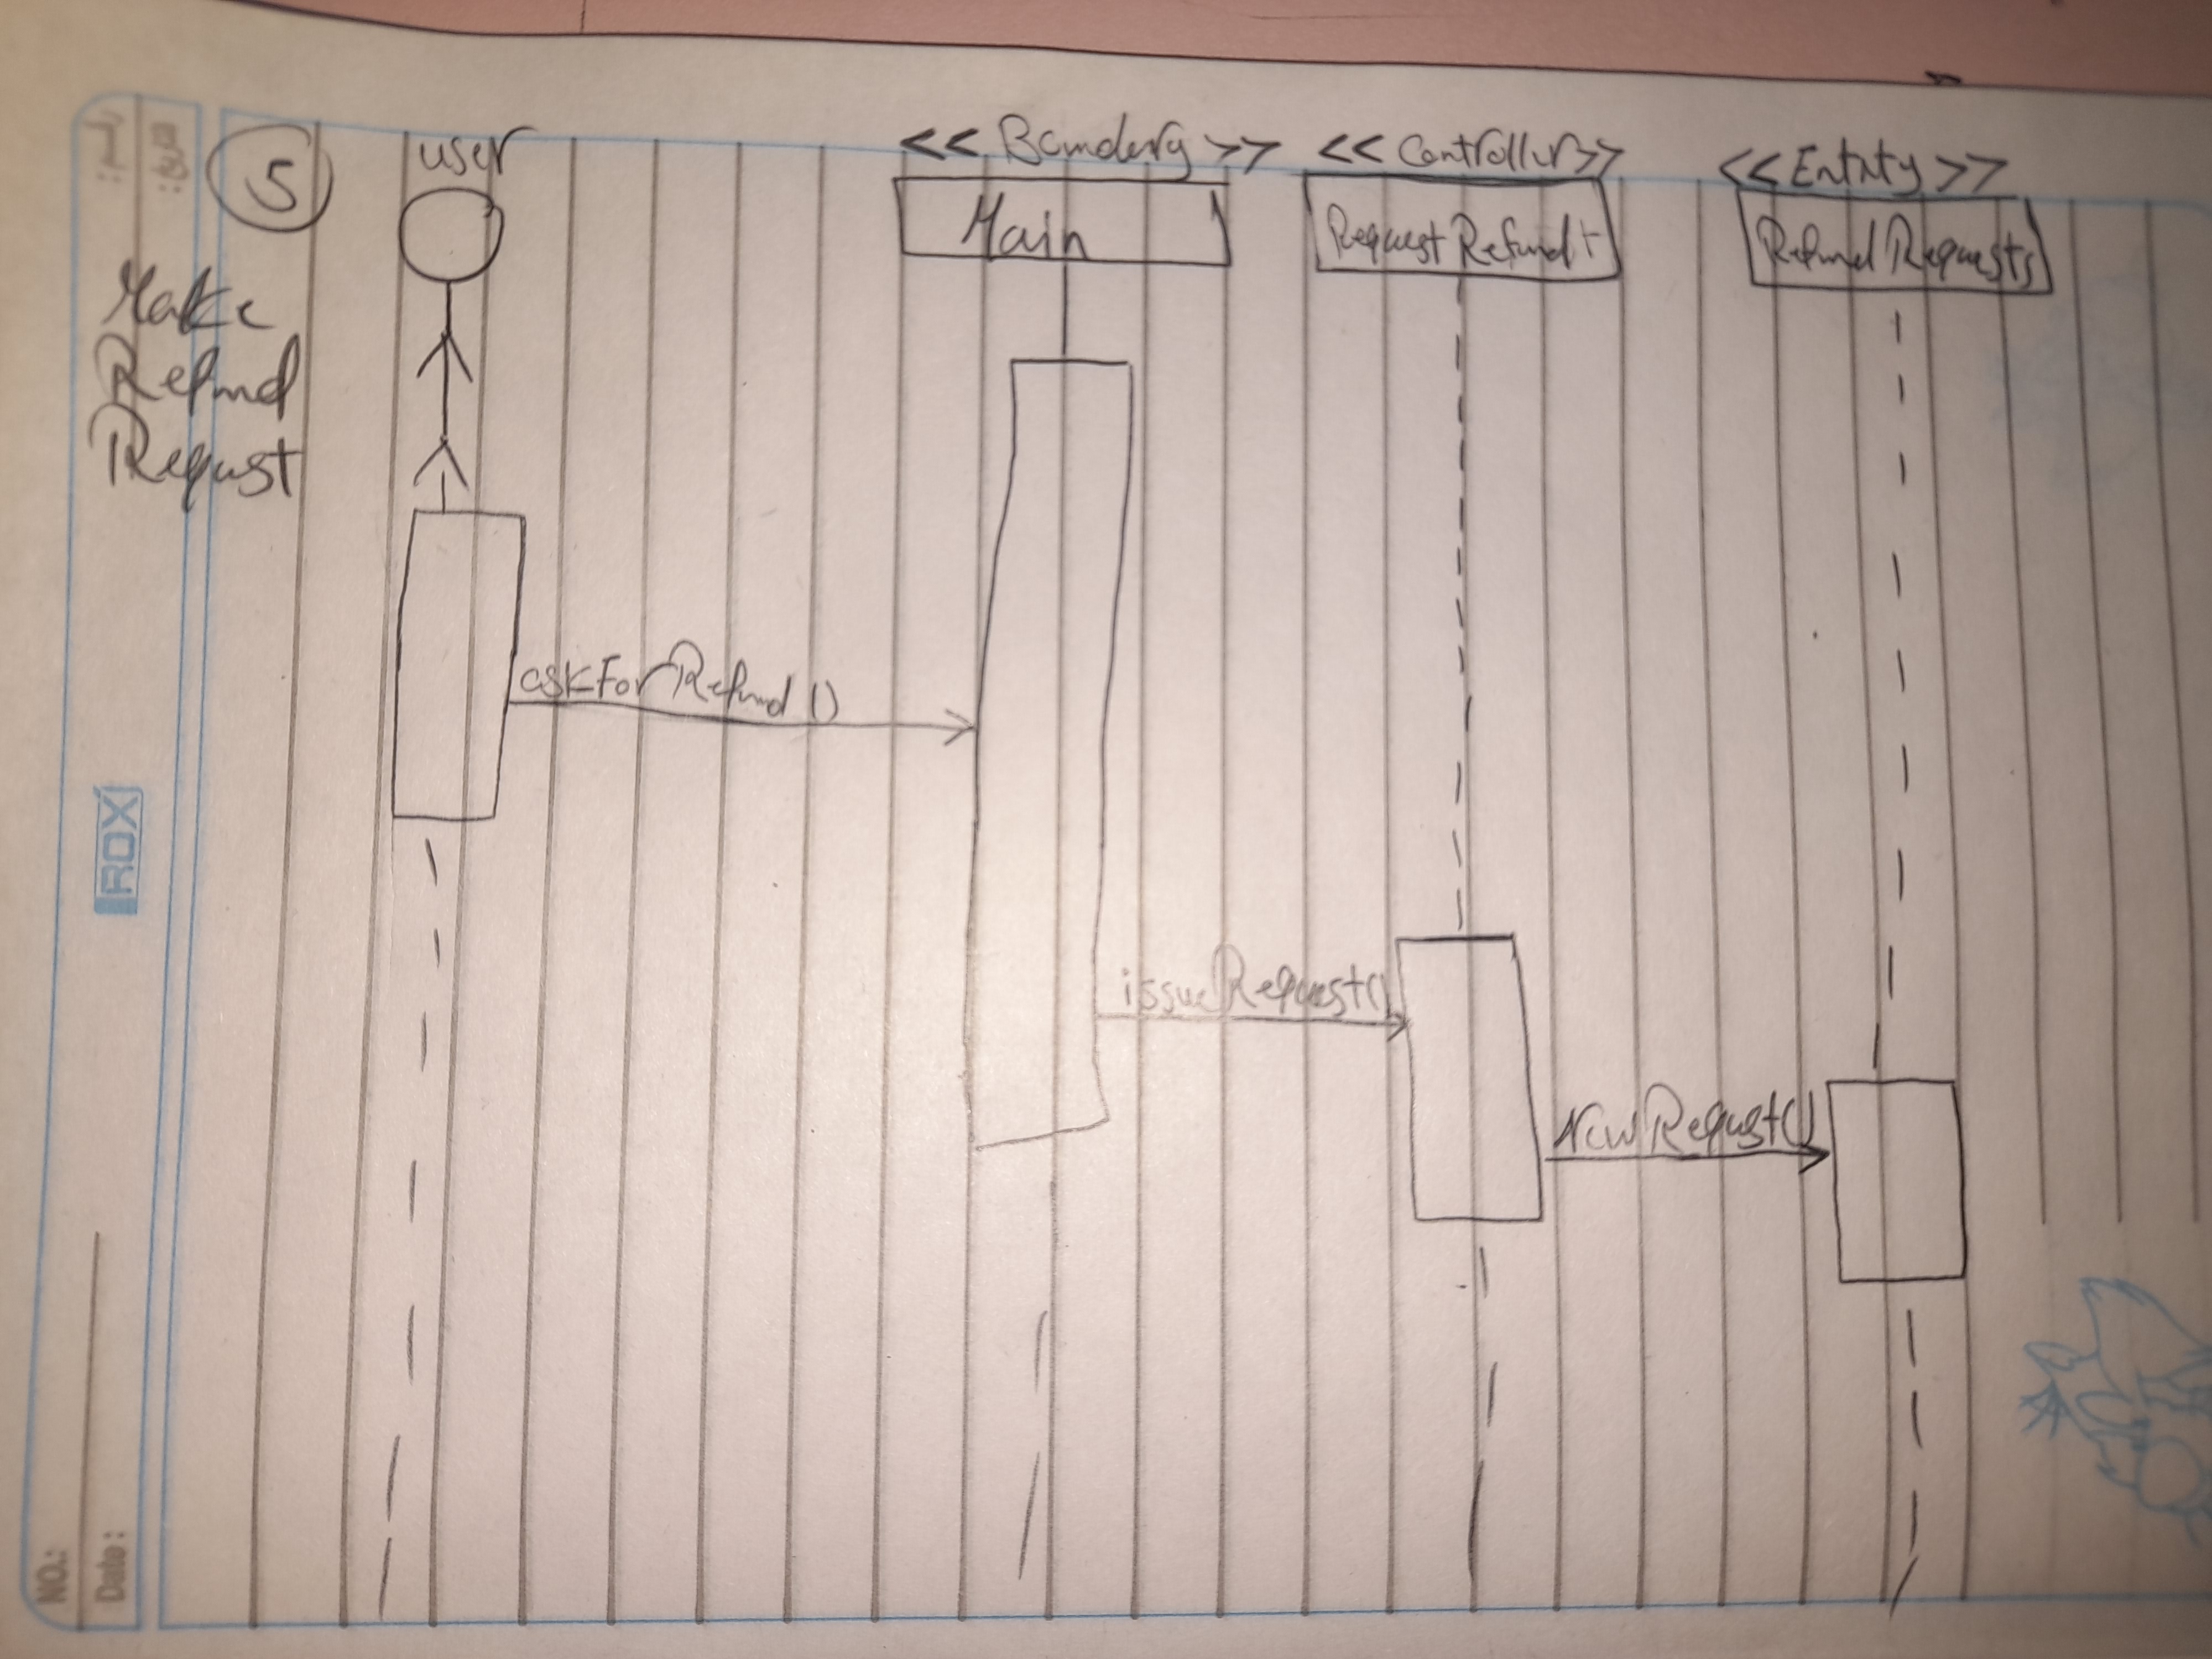 5
Make
Refund
Request
user
<< Boundary >>
Main
<< Controller>>
Request Refund
<< Entity >>
Refund Requests
askForRefund ()
issueRequest()
NewRequest()
ROX
NO.:
Date: